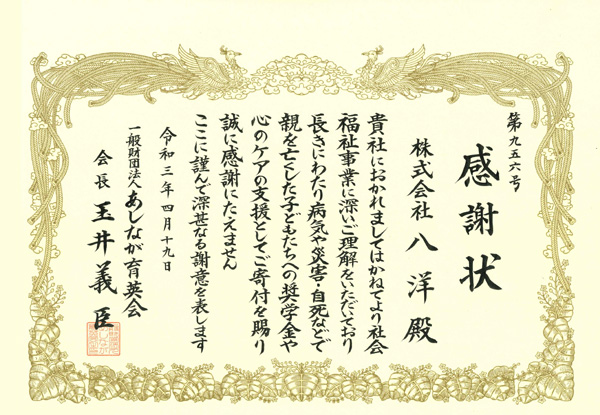 第九五六号
感謝状
株式会社 八洋殿
貴社におかれましてはかねてより社会
福祉事業に深いご理解をいただいており
長きにわたり病気や災害・自死などで
親を亡くした子どもたちへの奨学金や
心のケアの支援としてご寄付を賜り
誠に感謝にたえません
ここに謹んで深甚なる謝意を表します
令和三年四月十九日
一般財団法人 あしなが育英会
会長 玉井義臣